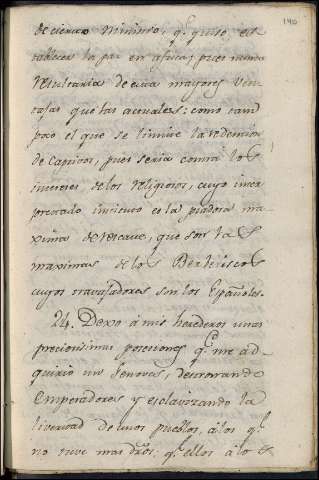 190
de cierto Ministro, qe. quiso es-
tablecer la paz en africa; pues nunca
resultaria de esta mayores ven-
tajas que las actuales: como tam-
poco el que se limite la redencion
de Captivos, pues seria contra los
intereses de los religiosos, cuyo inter-
pretado instituto es la piadosa ma-
xima de rescate, que son las
maximas de los Berberiscos
cuyos trabajadores son los Españoles.
24. Dexo á mis herederos unas
preciosisimas posesiones qe. me ad-
quirió mi Señora, destronando
Emperadores y esclavizando la
livertad de unos pueblos, á los qe.
no tuve mas dros. qe. ellos á los